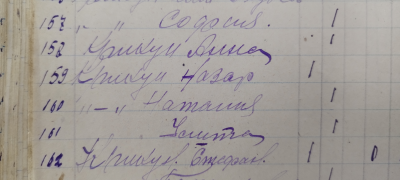 157 „ „ София. 1
158 Крикун Анна 1
159 Крикун Назар 1
160 „—„ Наталия 1
161 Улита 1
162 Стефан 1 0